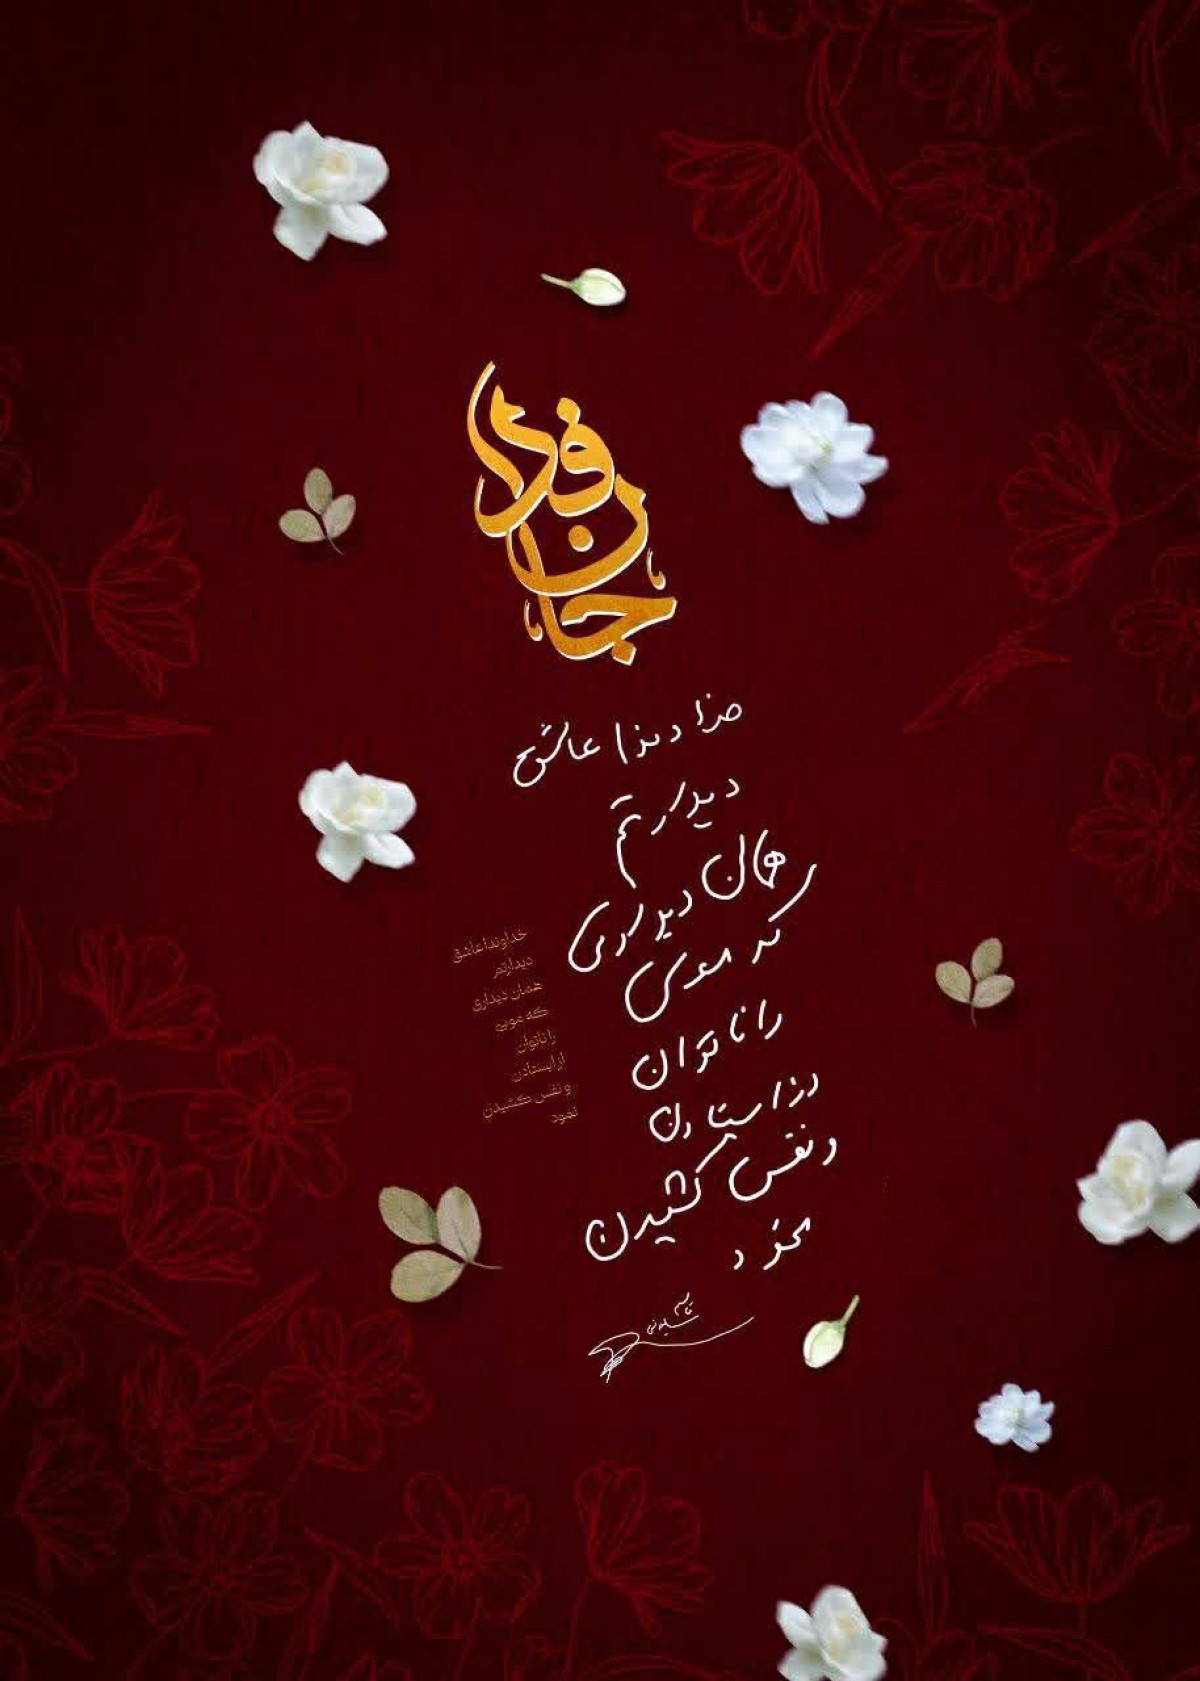 جان فدا
خداوندا عاشق
دیدارتم
همان دیداری
که موسی
را ناتوان
از ایستادن
و نفس کشیدن
نمود
خداوندا عاشق
دیدارتم
همان دیداری
که موسی
را ناتوان
از ایستادن
و نفس کشیدن
نمود
قاسم
سلیمانی